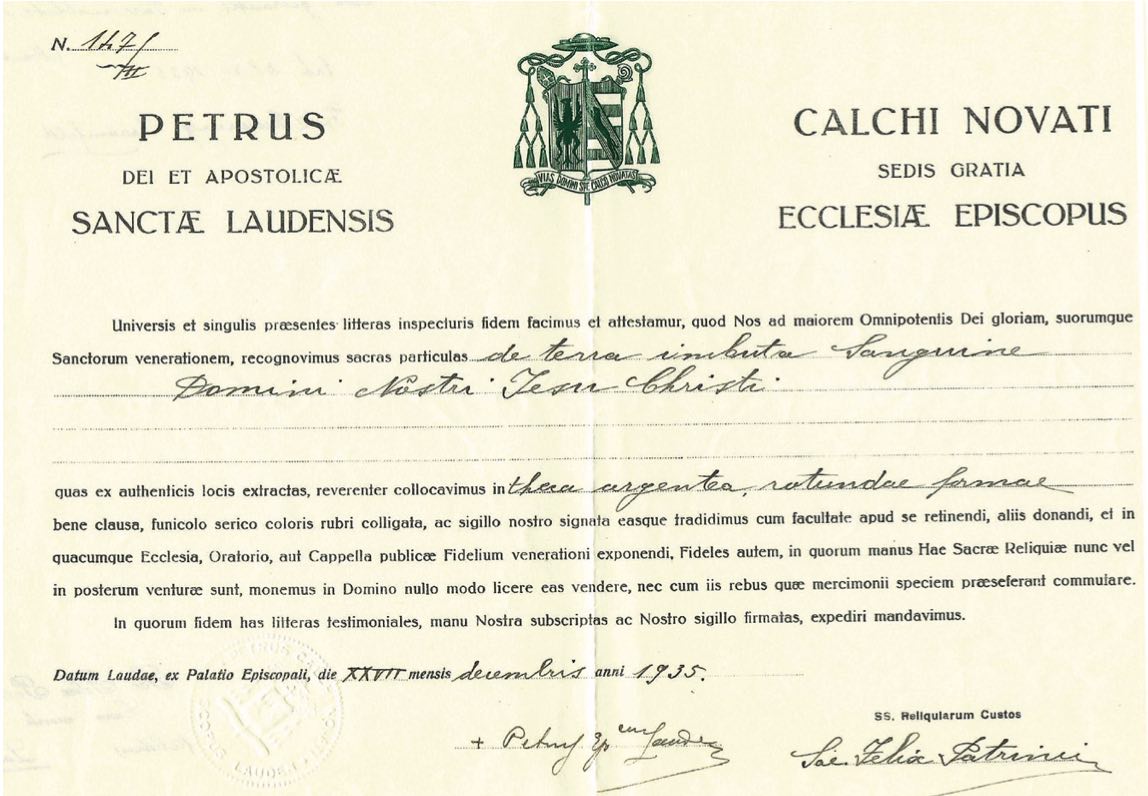 N. 147/III
PETRUS CALCHI NOVATI
DEI ET APOSTOLICÆ SEDIS GRATIA
SANCTÆ LAUDENSIS ECCLESIÆ EPISCOPUS
VIAS DOMINI SPE CALCO NOVATAS
Universis et singulis præsentes litteras inspecturis fidem facimus et attestamur, quod Nos ad maiorem Omnipotentis Dei gloriam, suorumque
Sanctorum venerationem, recognovimus sacras particulas de terra imbuta Sanguine
Domini Nostri Iesu Christi
quas ex authenticis locis extractas, reverenter collocavimus in theca argentea, rotundae formae
bene clausa, funicolo serico coloris rubri colligata, ac sigillo nostro signata easque tradidimus cum facultate apud se retinendi, aliis donandi, et in
quacumque Ecclesia, Oratorio, aut Cappella publicæ Fidelium venerationi exponendi, Fideles autem, in quorum manus Hae Sacræ Reliquiæ nunc vel
in posterum venturæ sunt, monemus in Domino nullo modo licere eas vendere, nec cum iis rebus quæ mercimonii speciem præseferant commutare.
In quorum fidem has litteras testimoniales, manu Nostra subscriptas ac Nostro sigillo firmatas, expediri mandavimus.
Datum Laudae, ex Palatio Episcopali, die XXVII mensis decembris anni 1935.
SS. Reliquiarum Custos
+ Petrus Ep
Sac. Felix Patrini